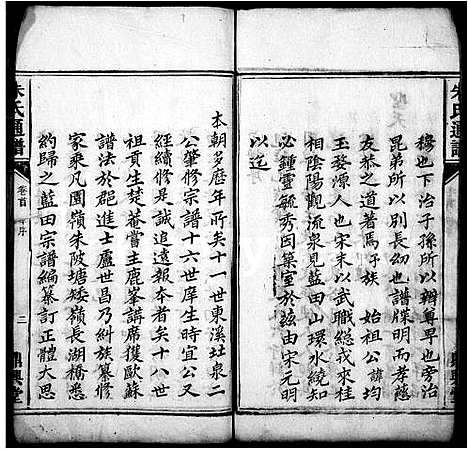 朱氏通譜
穆也下治子孫所以辨尊早也旁治
昆弟所以別長幼也譜牒明而孝慈
友恭之道著焉予族　始祖公諱均
玉婺源人也宋末以武職總戎來桂
相陰陽觀流泉見藍田山環水繞知
必鍾靈毓秀因築室於兹由宋元明
以迄
本朝多歷年所矣十一世東溪社泉二
公肇修宗譜十六世庠生時宜公又
經續修是誠追遠報本者矣十八世
祖貢生楚菴嘗主鹿峯講席獲歐蘇
譜法於郡進士盧世昌乃糾族纂修
家乘凡園嶺朱陂塘矮嶺長湖橋悉
約歸之藍田宗譜編纂訂正體大思
朱氏通譜
卷首
序
二
鼎興堂